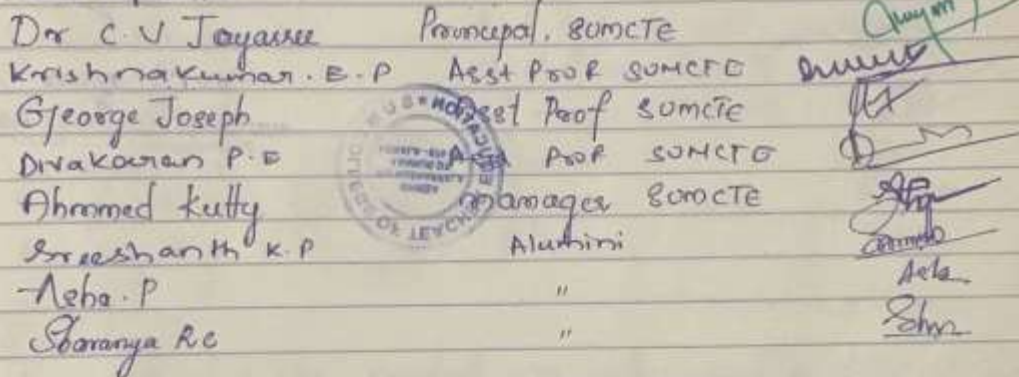 Dr C.V Jayasree Principal, SUMCTE
Krishnakumar. E.P Asst Prof SUMCTE
George Joseph Asst Prof SUMCTE
Divakaran P.E Asst Prof SUMCTE
Ahmmed Kutty Manager SUMCTE
Sreeshanth K.P Alumini
Neha. P "
Sharanya R C "